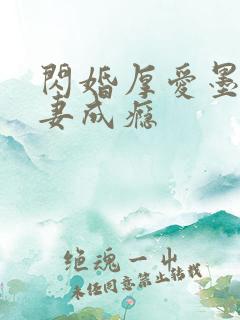 閃婚厚爱墨
妻成瘾
绝魂一出
未经同意禁止转载